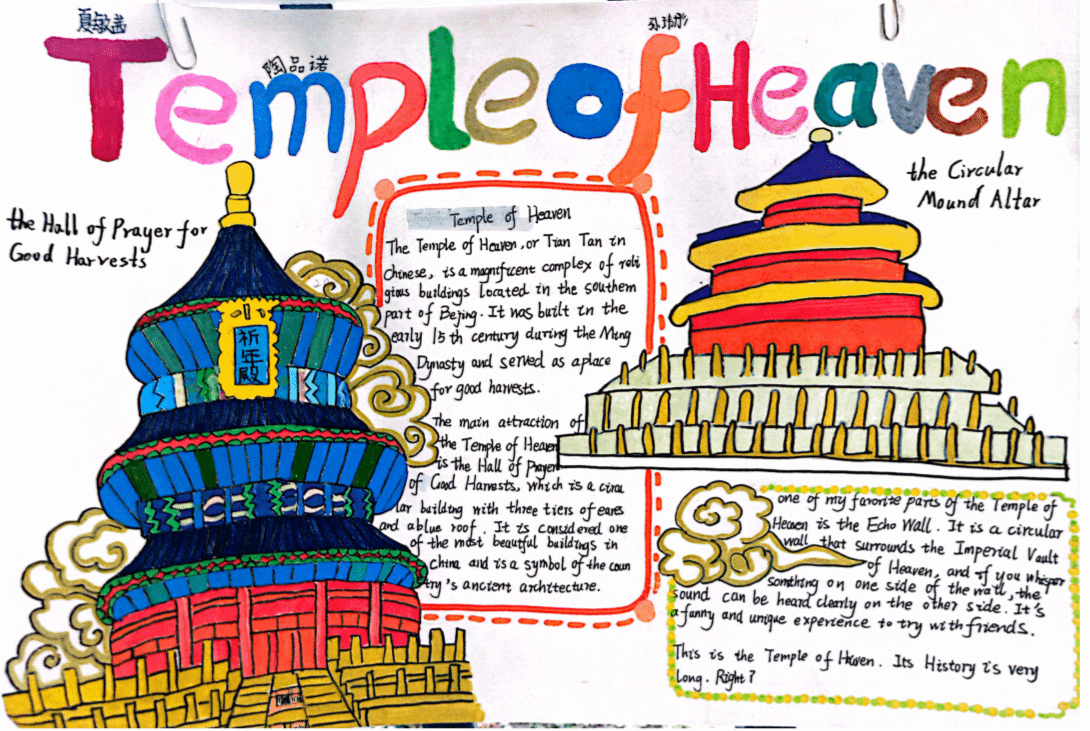 夏敏益
孙艳彤
陶品诺
Temple of Heaven
the Hall of Prayer for
Good Harvests
祈年殿
Temple of Heaven
The Temple of Heaven, or Tian Tan in
Chinese, is a magnificent complex of reli
gious buildings located in the southern
part of Bejing. It was built in the
early 15th century during the Ming
Dynasty and served as aplace
for good harvests.
The main attraction of
the Temple of Heaven
is the Hall of Prayer
of Good Harvests, which is a circu
lar building with three tiers of eares
and a blue roof. It is considered one
of the most beautful buildings in
China and is a symbol of the coun
try's ancient architecture.
the Circular
Mound Altar
one of my favorite parts of the Temple of
Heaven is the Echo Wall. It is a circular
wall that surrounds the Imperial Vault
of Heaven, and if you whisper
somthing on one side of the wall, the
sound can be heard clearly on the other side. It's
a fanny and unique experience to try with friends.
This is the Temple of Heven. Its History is very
long. Right?